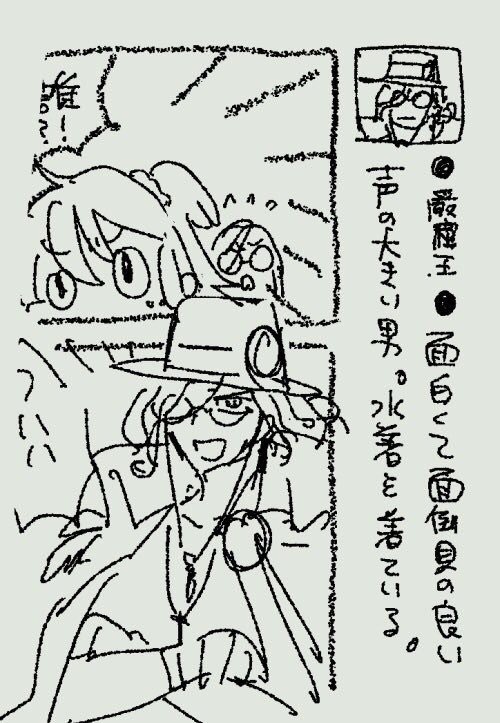 ●巌窟王●面白くて面倒見の良い
声の大きい男。水着を着ている。
誰!